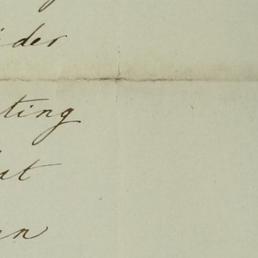 ider
ting
at
an